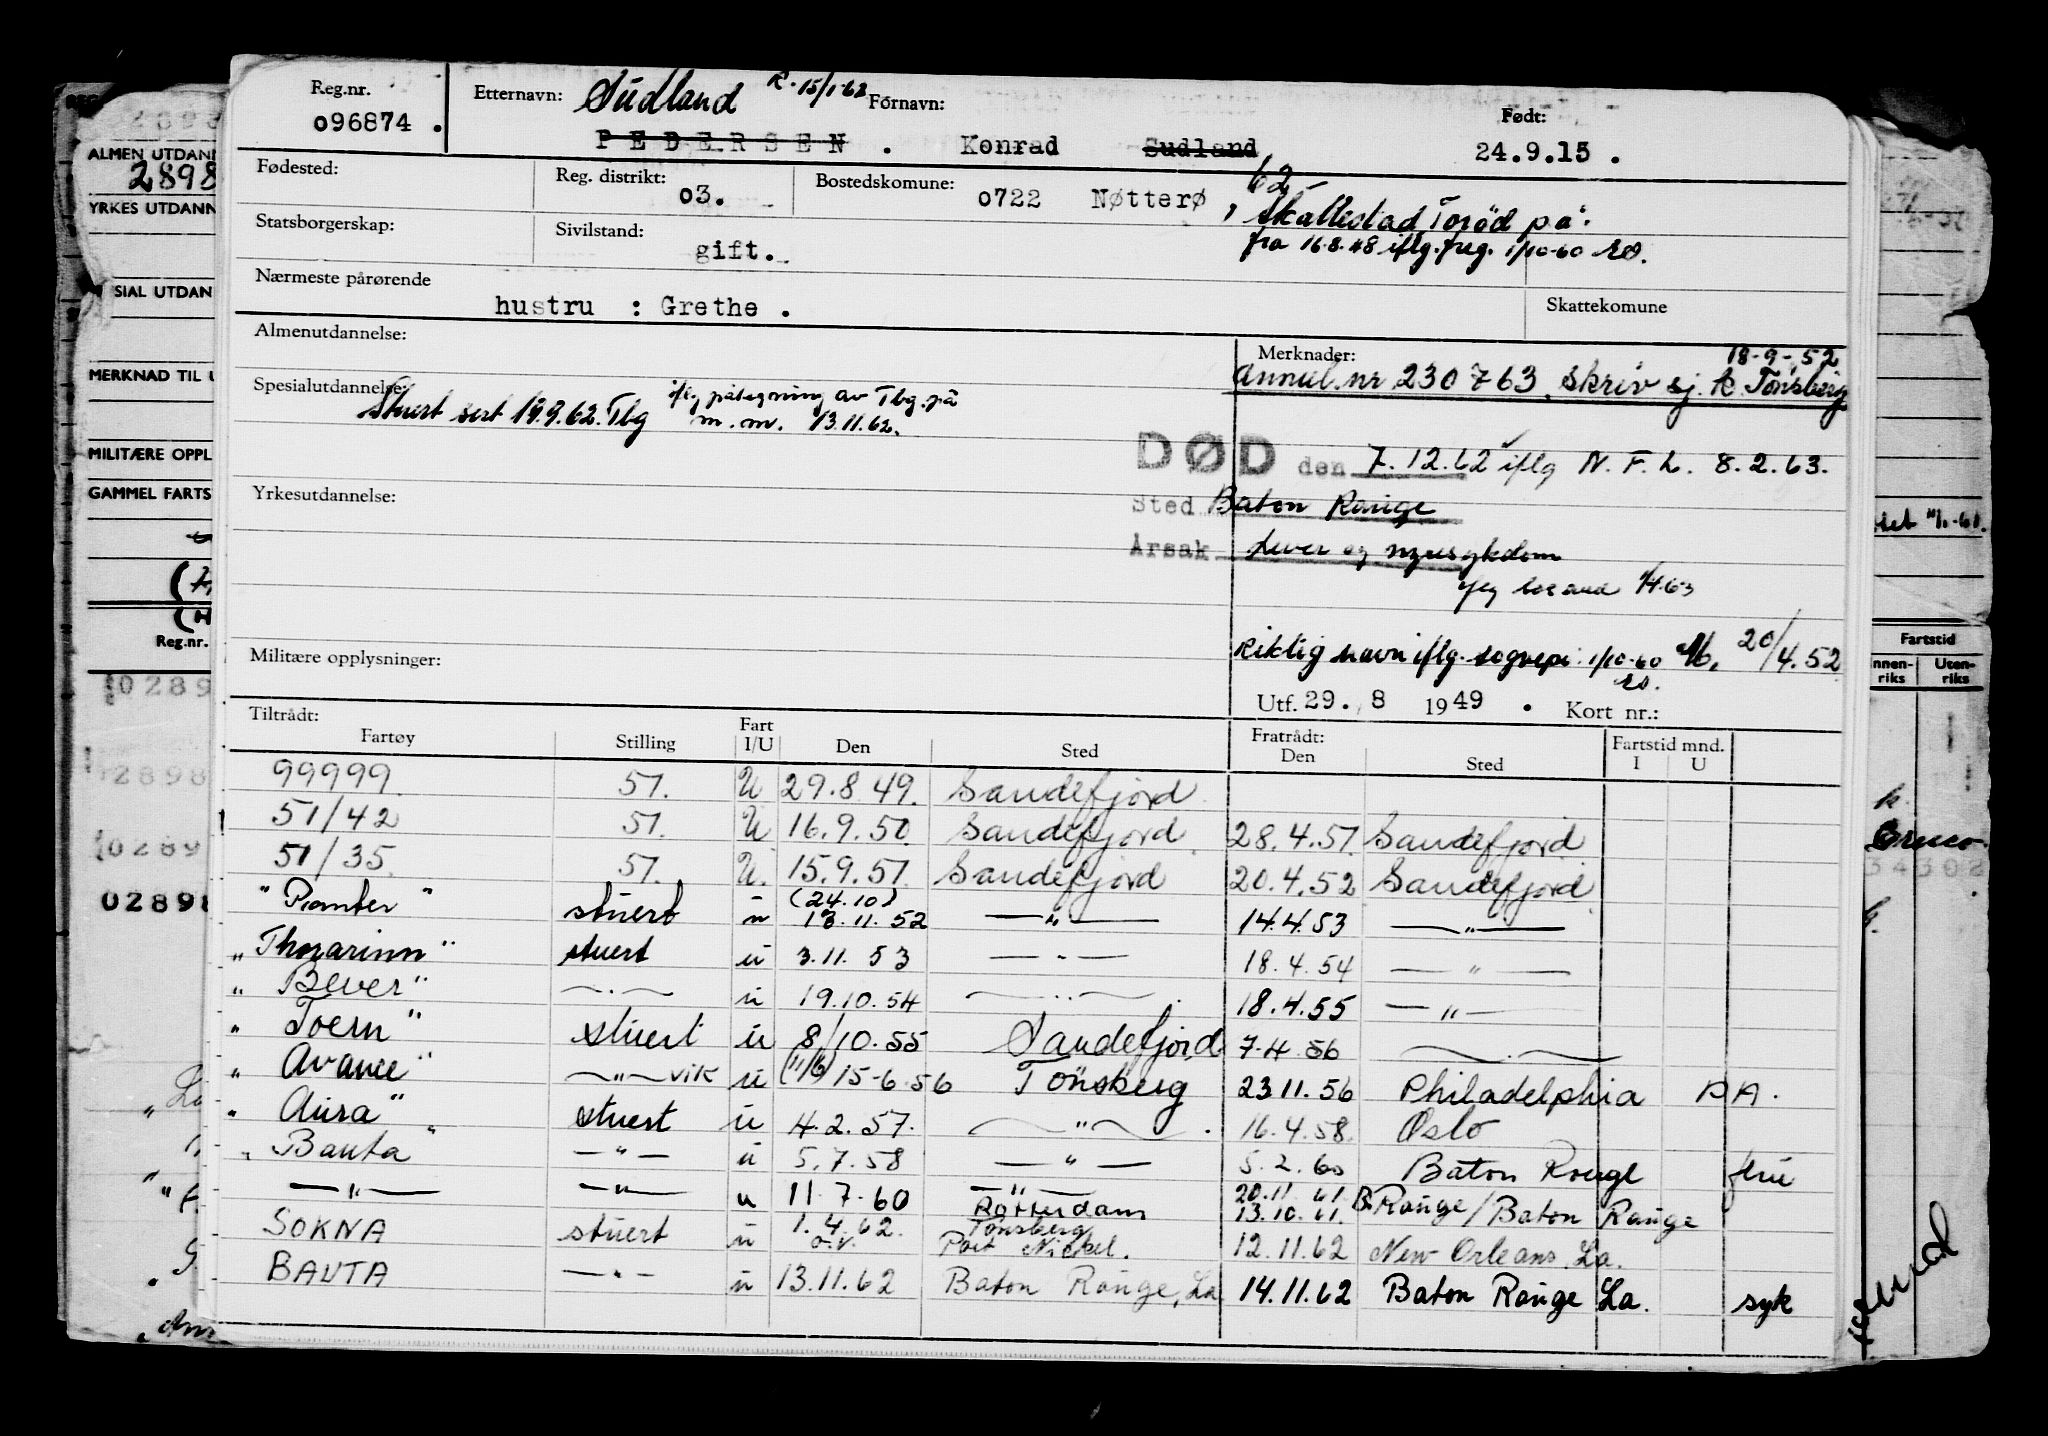 Reg.nr. Etternavn: Sudland R. 15/1-62 Fornavn: Født:
096874 . PEDERSEN . Konrad Sudland 24.9.15 .
Fødested: Reg. distrikt: 03. Bostedskomune: 0722 Nøtterø, 62
Skallestad Torød på.
Statsborgerskap: Sivilstand: gift. fra 16.8.48 iflg. freg. 1/10-60
Nærmeste pårørende
hustru : Grethe . Skattekomune
Almenutdannelse: Merknader: 18-9-52
annul. nr 230763. skriv sj. k. Tönsberg
Spesialutdannelse:
Stuert sert 19.9.62. Tbg iflg påtegning av Tbg. på
m.m. 13.11.62.
DØD den 7.12.62 iflg N.F.L. 8.2.63.
Yrkesutdannelse:
Sted Baton Rouge
Årsak Lever og nyresykdom
Riktig navn iflg. 1/10-60 20/4.52
Militære opplysninger:
Utf. 29. 8 1949 . Kort nr.:
Tiltrådt: Fratrådt: Fartstid mnd.
Fartøy Stilling Fart I/U Den Sted Den Sted I U
99999. 51. U 29.8.49. Sandefjord
51/42 51. U 16.9.50. Sandefjord 28.4.51. Sandefjord
51/35. 51. U. 15.9.51. Sandefjord 20.4.52 Sandefjord
"Panter" stuert u (24.10) 13.11.52 —"— 14.4.53 —"—
"Thorarinn" stuert u 3.11.53 —"— 18.4.54 —"—
"Bever" —"— u 19.10.54 —"— 18.4.55 —"—
"Toern" stuert u 8/10.55 Sandefjord 7.4.56 —"—
"Avance" —"— vik u (11/6) 15-6.56 Tönsberg 23.11.56 Philadelphia PA.
"Aura" stuert u 4.2.57. —"— 16.4.58. Oslo
"Bauta" —"— u 5.7.58 —"— 5.2.60 Baton Rouge ferie
—"— —"— u 11.7.60 —"— Rotterdam 20.11.61 13.10.61. B. Rouge / Baton Rouge
SOKNA stuert u 1.4.62. Tönsberg Port Nickel. 12.11.62 New Orleans La.
BAUTA —"— u 13.11.62 Baton Rouge, La 14.11.62 Baton Rouge La. syk
ALMEN UTDANN
2898
YRKES UTDANN
SIAL UTDAN
MERKNAD TIL U
MILITÆRE OPPL
GAMMEL FARTS
Reg.nr.
02898
Fartstid
Innen-riks Uten-riks
34302